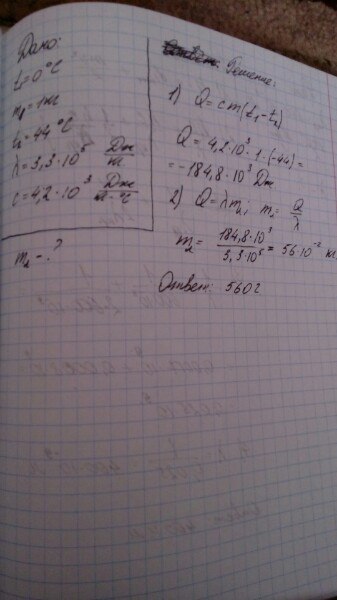 Дано:
t₁=0°C
m₁=1кг
t₂=44°C
λ=3,3·10⁵ Дж/кг
c=4,2·10³ Дж/кг·°C
m₂-?
Решение:
1) Q=cm(t₁-t₂)
Q=4,2·10³·1·(-44)=
=-184,8·10³ Дж
2) Q=λm₂, m₂=Q/λ
m₂=184,8·10³/3,3·10⁵=56·10⁻² кг
Ответ: 560г